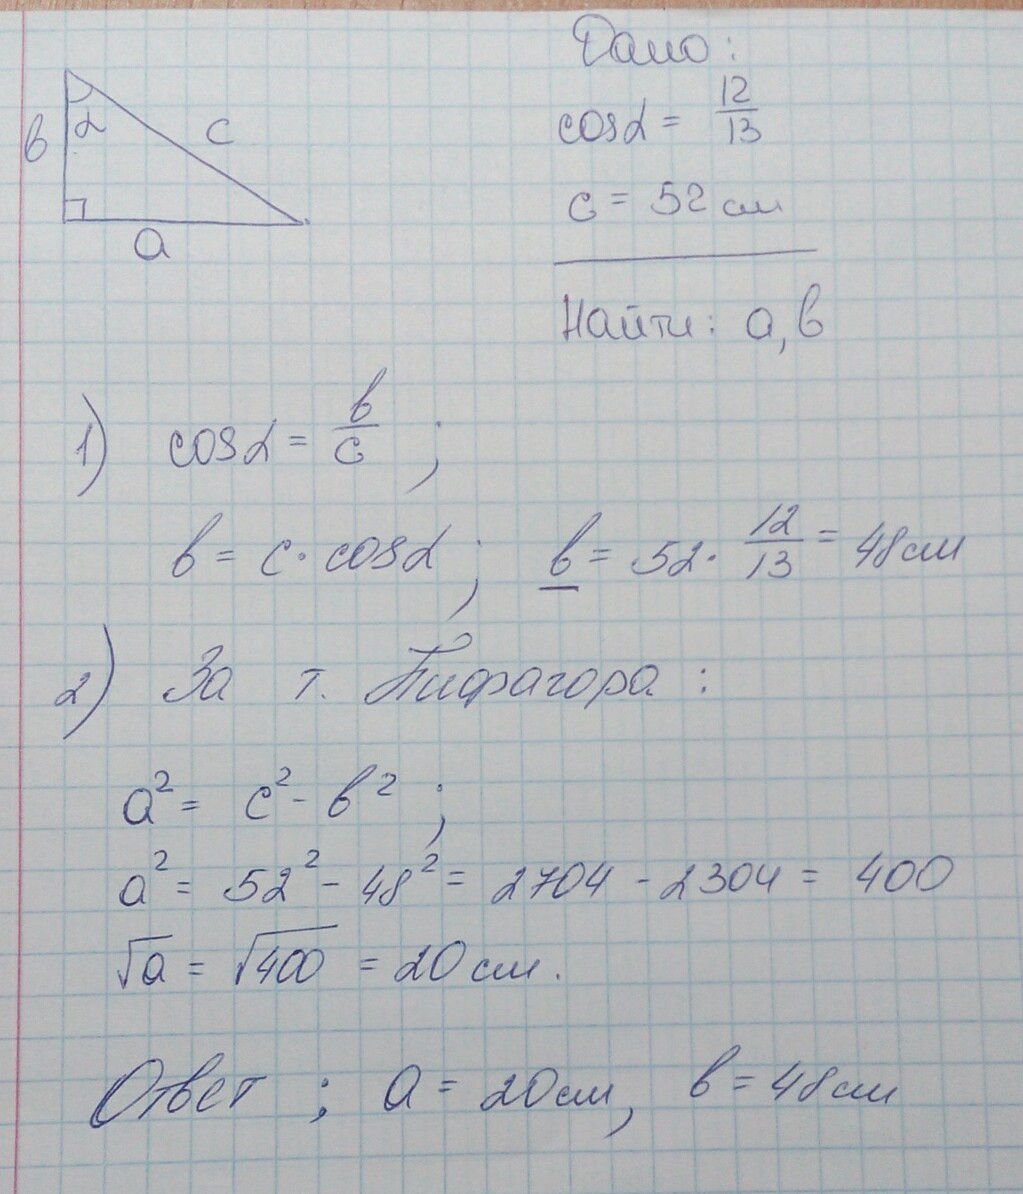 в
α
c
a
Дано:
cosα = 12/13
c = 52 см
Найти: a, в
1) cosα = в/c ;
в = c · cosα ; в = 52 · 12/13 = 48 см
2) За т. Пифагора :
a² = c² - в² ;
a² = 52² - 48² = 2704 - 2304 = 400
√a = √400 = 20 см.
Ответ ; a = 20 см, в = 48 см